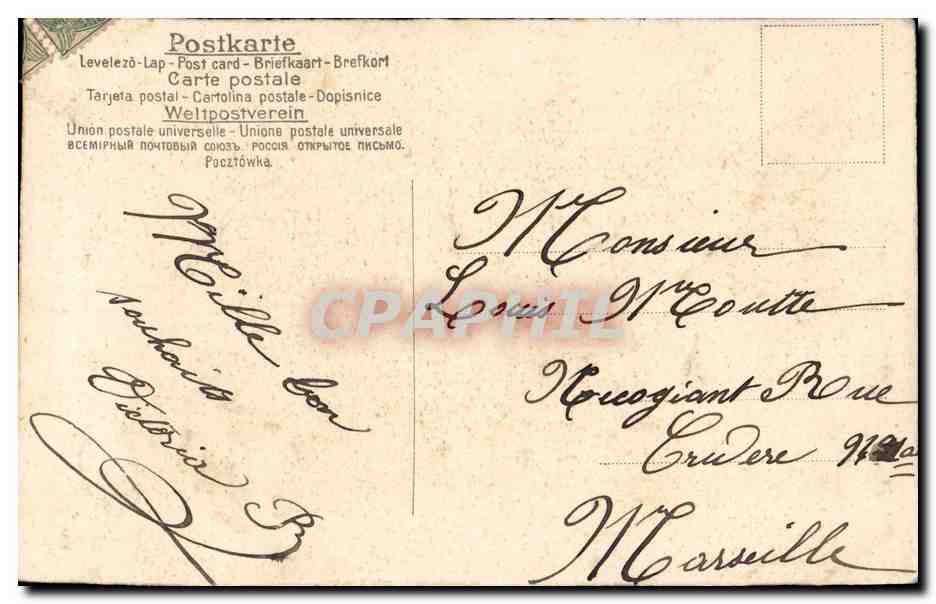 Postkarte
Levelező-Lap - Post card - Briefkaart - Brefkort
Carte postale
Tarjeta postal - Cartolina postale - Dopisnice
Weltpostverein
Union postale universelle - Unione postale universale
ВСЕМІРНЫЙ ПОЧТОВЫЙ СОЮЗЪ. РОССІЯ. ОТКРЫТОЕ ПИСЬМО.
Pocztówka.
Mille bon
souhaits
Victoria B
Monsieur
Louis Moutte
Rue
Crudere
Marseille
CPAPHIL